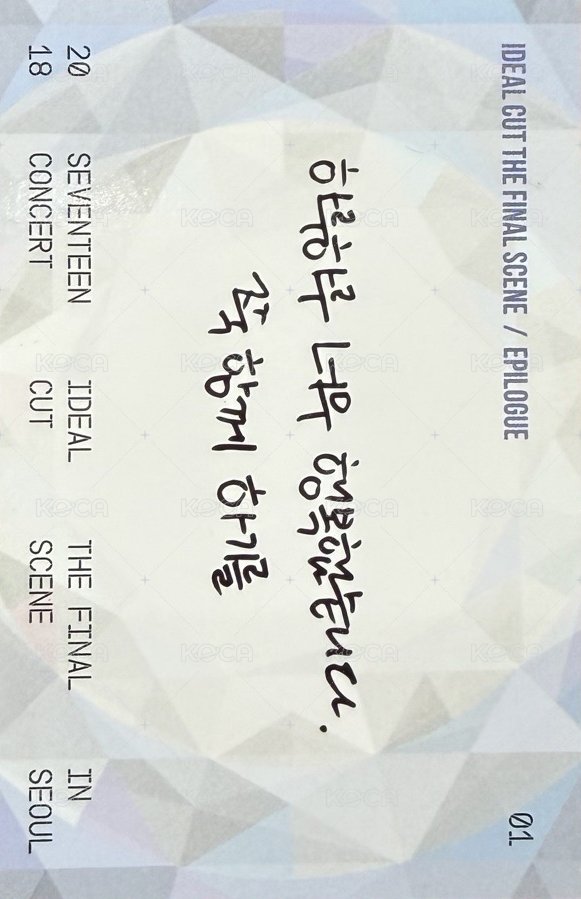 IDEAL CUT THE FINAL SCENE / EPILOGUE
01
하루하루 너무 행복했습니다.
꼭 함께 하기를
20 SEVENTEEN IDEAL THE FINAL IN
18 CONCERT CUT SCENE SEOUL
KOCA